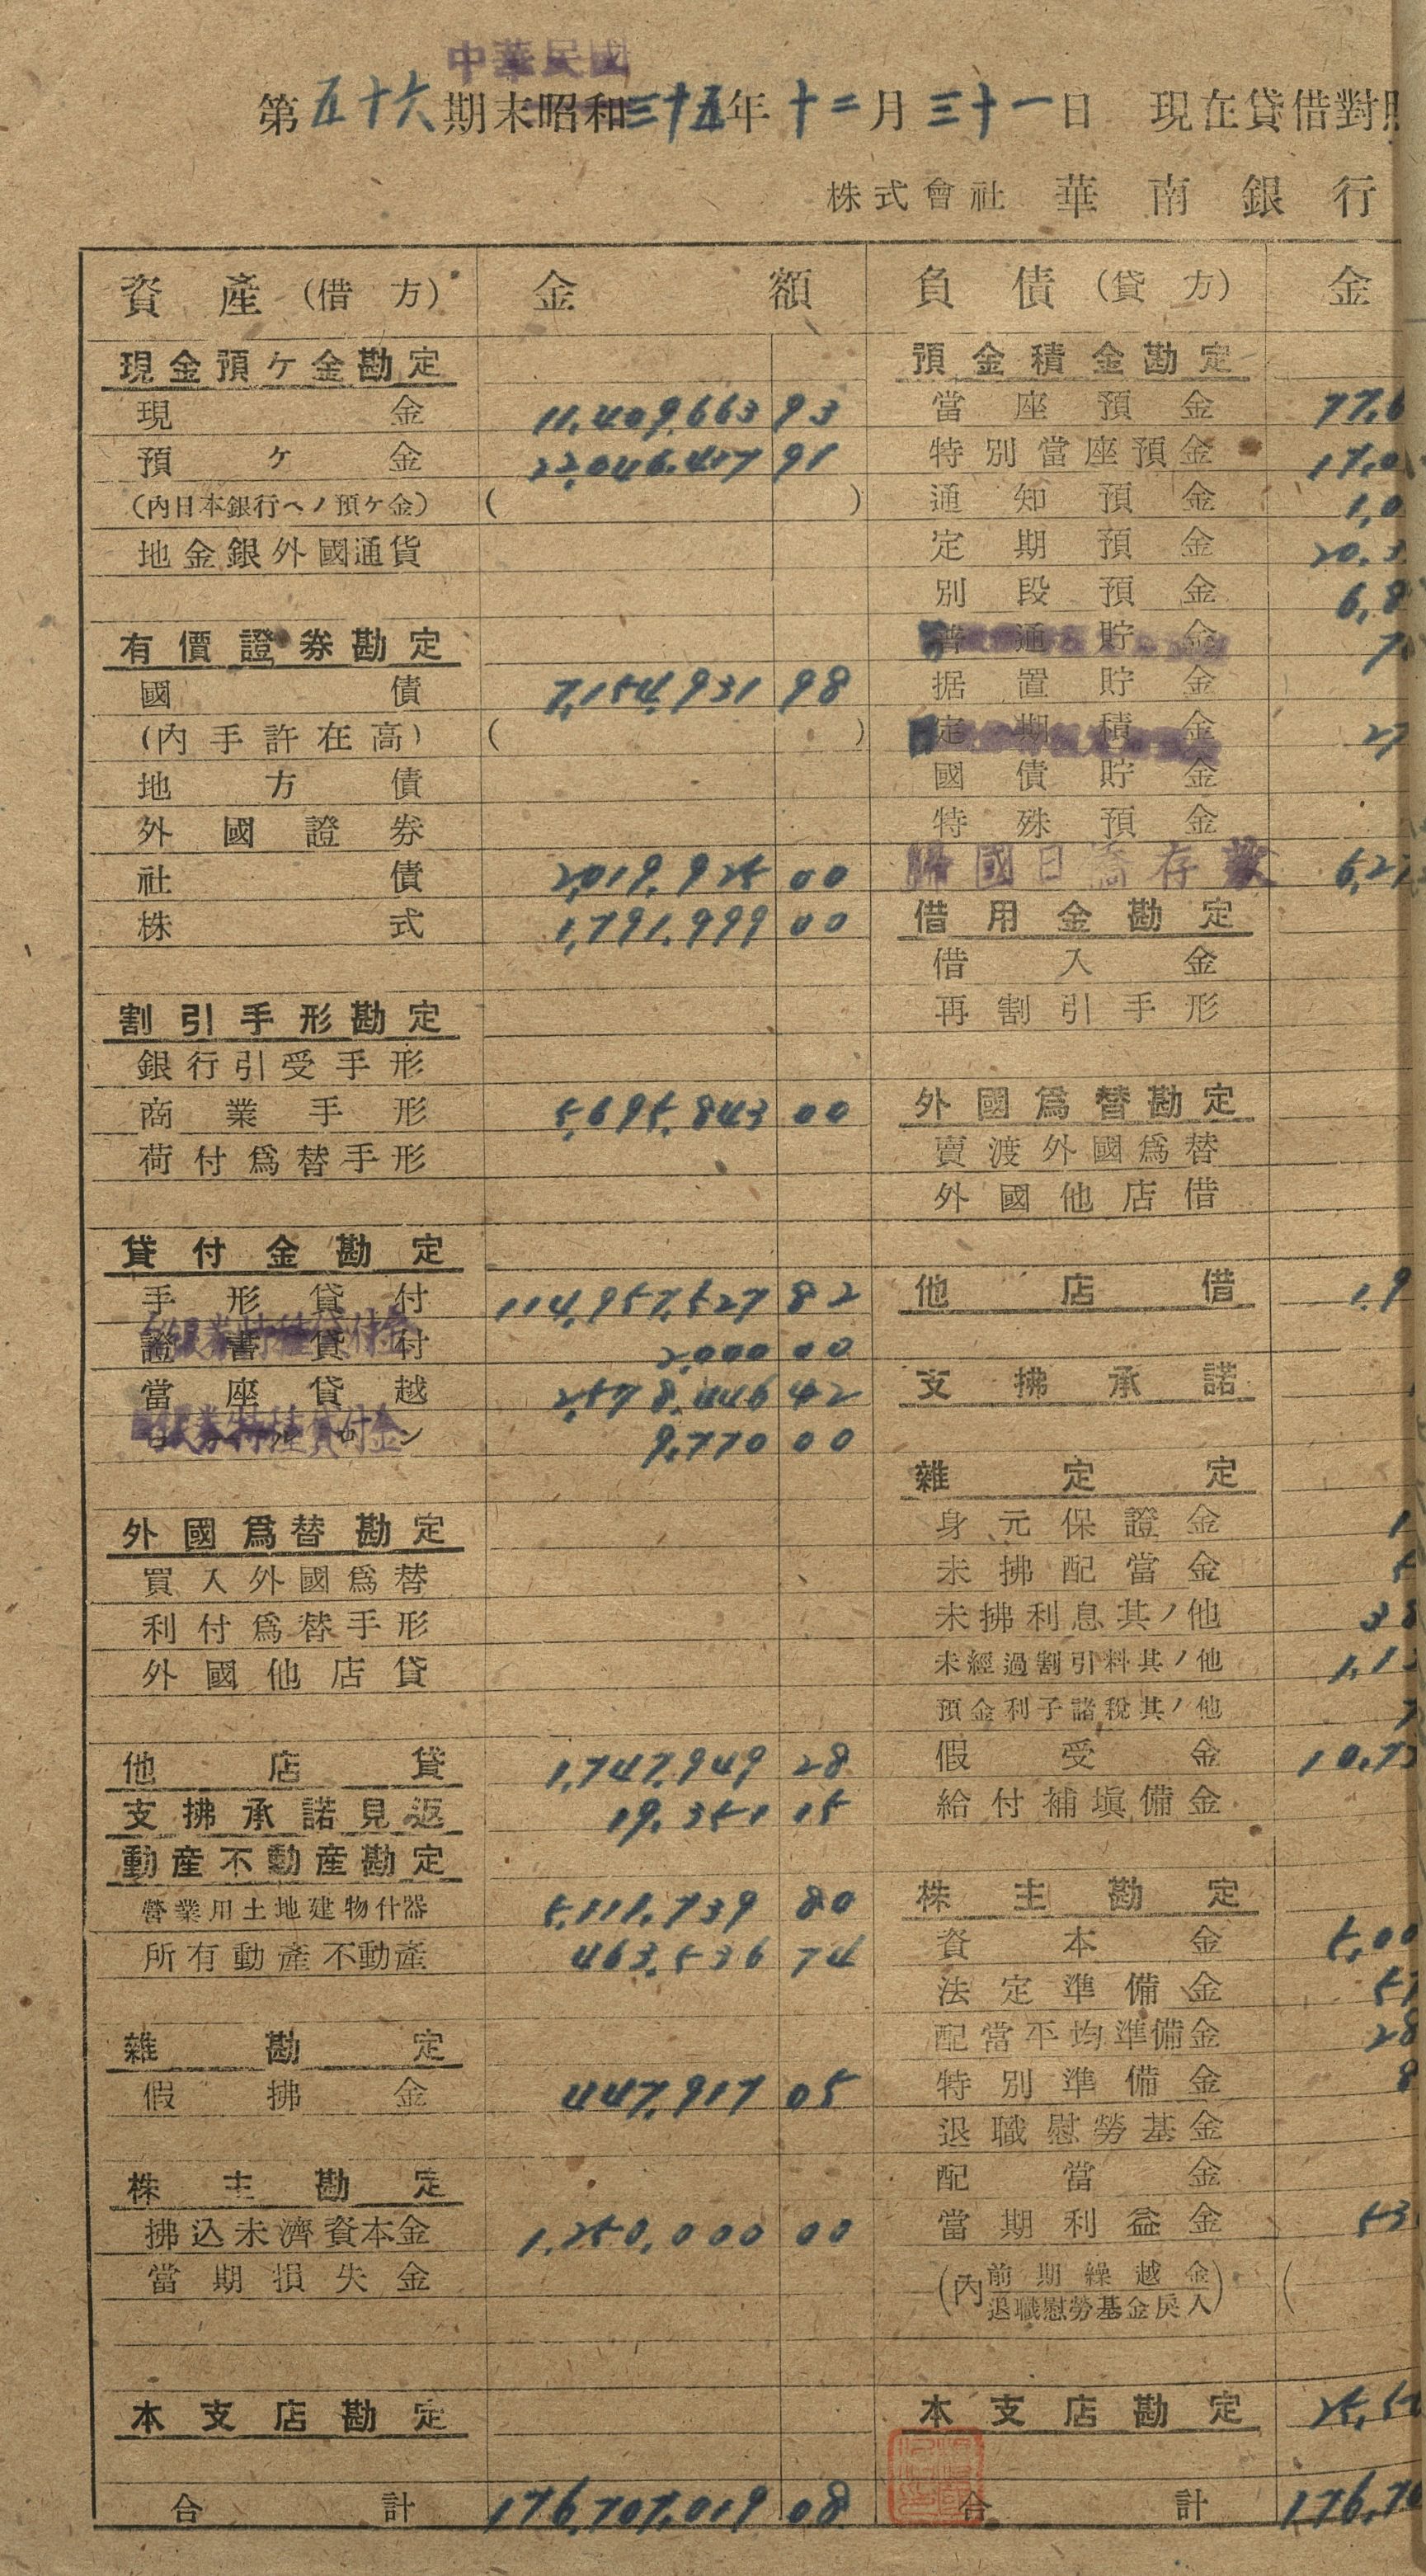 中華民國
第五十六期末昭和三十五年十二月三十一日 現在貸借對
株式會社 華南銀行
資產(借方) 金額
現金預ケ金勘定
現金 11,409,663 93
預ケ金 22,046,417 91
(内日本銀行ヘノ預ケ金) ( )
地金銀外國通貨
有價證券勘定
國債 7,154,931 98
(内手許在高) ( )
地方債
外國證券
社債 2,019,925 00
株式 1,791,999 00
割引手形勘定
銀行引受手形
商業手形 5,695,843 00
荷付爲替手形
貸付金勘定
手形貸付 114,957,527 82
證書貸付 2,000 00
當座貸越 2,578,446 42
コールローン 9,770 00
外國爲替勘定
買入外國爲替
利付爲替手形
外國他店貸
他店貸 1,747,949 28
支拂承諾見返 19,351 15
動産不動産勘定
營業用土地建物什器 5,111,739 80
所有動產不動產 463,536 74
雜勘定
假拂金 447,917 05
株主勘定
拂込未濟資本金 1,250,000 00
當期損失金
本支店勘定
合計 176,707,019 08
負債(貸方) 金
預金積金勘定
當座預金 77,6
特別當座預金 17,0
通知預金 1,0
定期預金 20,3
別段預金 6,8
普通貯金 7
据置貯金
定期積金 27
國債貯金
特殊預金
歸國日僑存款 6,27
借用金勘定
借入金
再割引手形
外國爲替勘定
賣渡外國爲替
外國他店借
他店借 1,9
支拂承諾
雜定定
身元保證金 1
未拂配當金 5
未拂利息其ノ他 38
未經過割引料其ノ他 1,1
預金利子諸稅其ノ他 7
假受金 10,73
給付補塡備金
株主勘定
資本金 5,00
法定準備金 57
配當平均準備金 28
特別準備金 8
退職慰勞基金
配當金
當期利益金 53
(内 前期繰越金
退職慰勞基金戾入) (
本支店勘定 25,52
合計 176,70